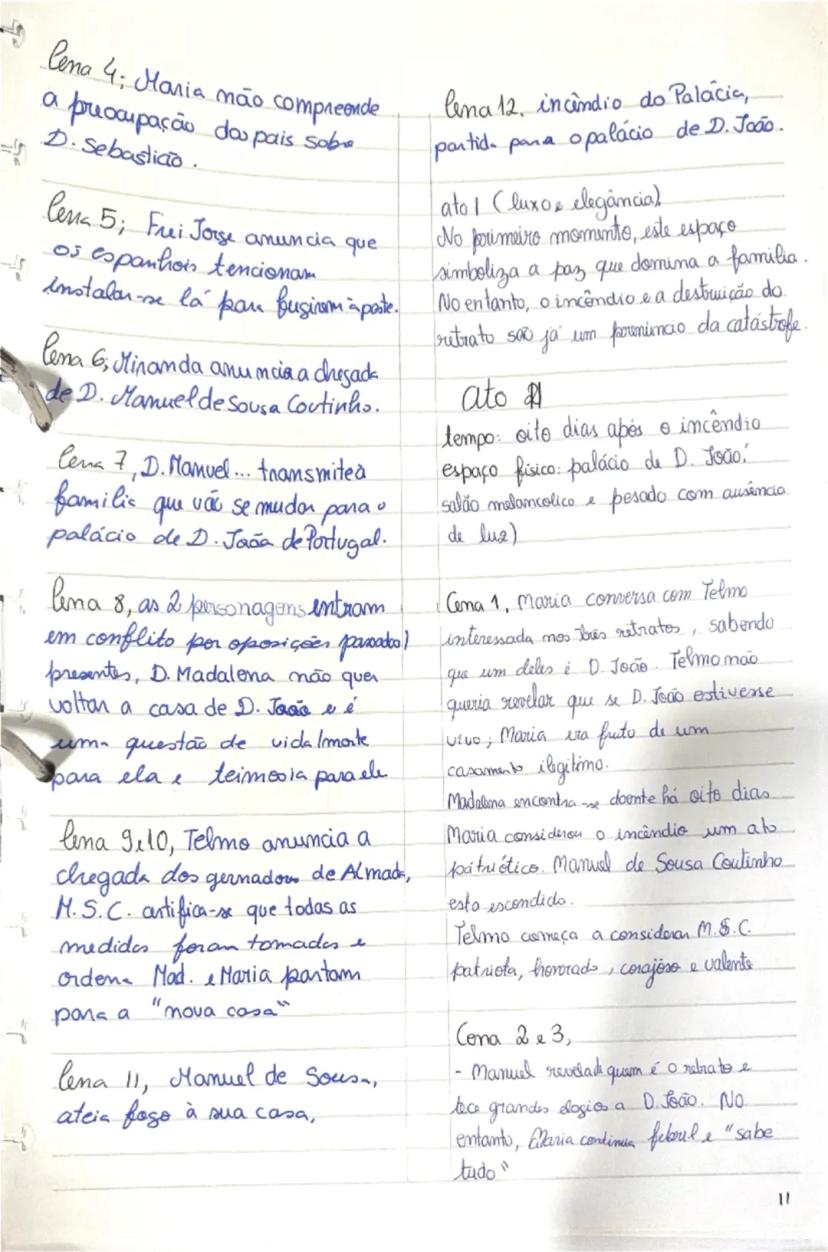 Cena 4; Maria não compreende
a preocupação dos pais sobre
D. Sebastião.
Cena 5; Frei Jorge anuncia que
os espanhois tencionam
instalar-se lá para fugirem à peste.
Cena 6; Miranda anuncia a chegada
de D. Manuel de Sousa Coutinho.
Cena 7, D. Manuel... transmite à
familia que vão se mudar para o
palácio de D. João de Portugal.
Cena 8, as 2 personagens entram
em conflito por oposições passado/
presentes, D. Madalena não quer
voltar a casa de D. João e é
uma questão de vida/morte
para ela e teimosia para ele
Cena 9 e 10, Telmo anuncia a
chegada dos gernadores de Almada,
M.S.C. certifica-se que todas as
medidas foram tomadas e
ordena Mad. e Maria partam
para a "nova casa"
Cena 11, Manuel de Sousa,
ateia fogo à sua casa,
Cena 12, incêndio do Palácio,
partida para o palácio de D. João.
ato I (luxo e elegância)
No primeiro momento, este espaço
simboliza a paz que domina a família.
No entanto, o incêndio e a destruição do
retrato são já um prenúncio da catástrofe.
ato II
tempo: oito dias após o incêndio
espaço físico: palácio de D. João:
salão melancolico e pesado com ausência
de luz)
Cena 1, Maria conversa com Telmo
interessada nos três retratos, sabendo
que um deles é D. João. Telmo não
queria revelar que se D. João estivesse
vivo, Maria era fruto de um
casamento ilegitimo.
Madalena encontra-se doente há oito dias
Maria considerou o incêndio um ato
patriótico. Manuel de Sousa Coutinho
esta escondido.
Telmo começa a considerar M.S.C.
patriota, honrado, corajoso e valente
Cena 2 e 3,
- Manuel revela de quem é o retrato e
tece grandes elogios a D. João. No
entanto, Maria continua febril e "sabe
tudo"
11